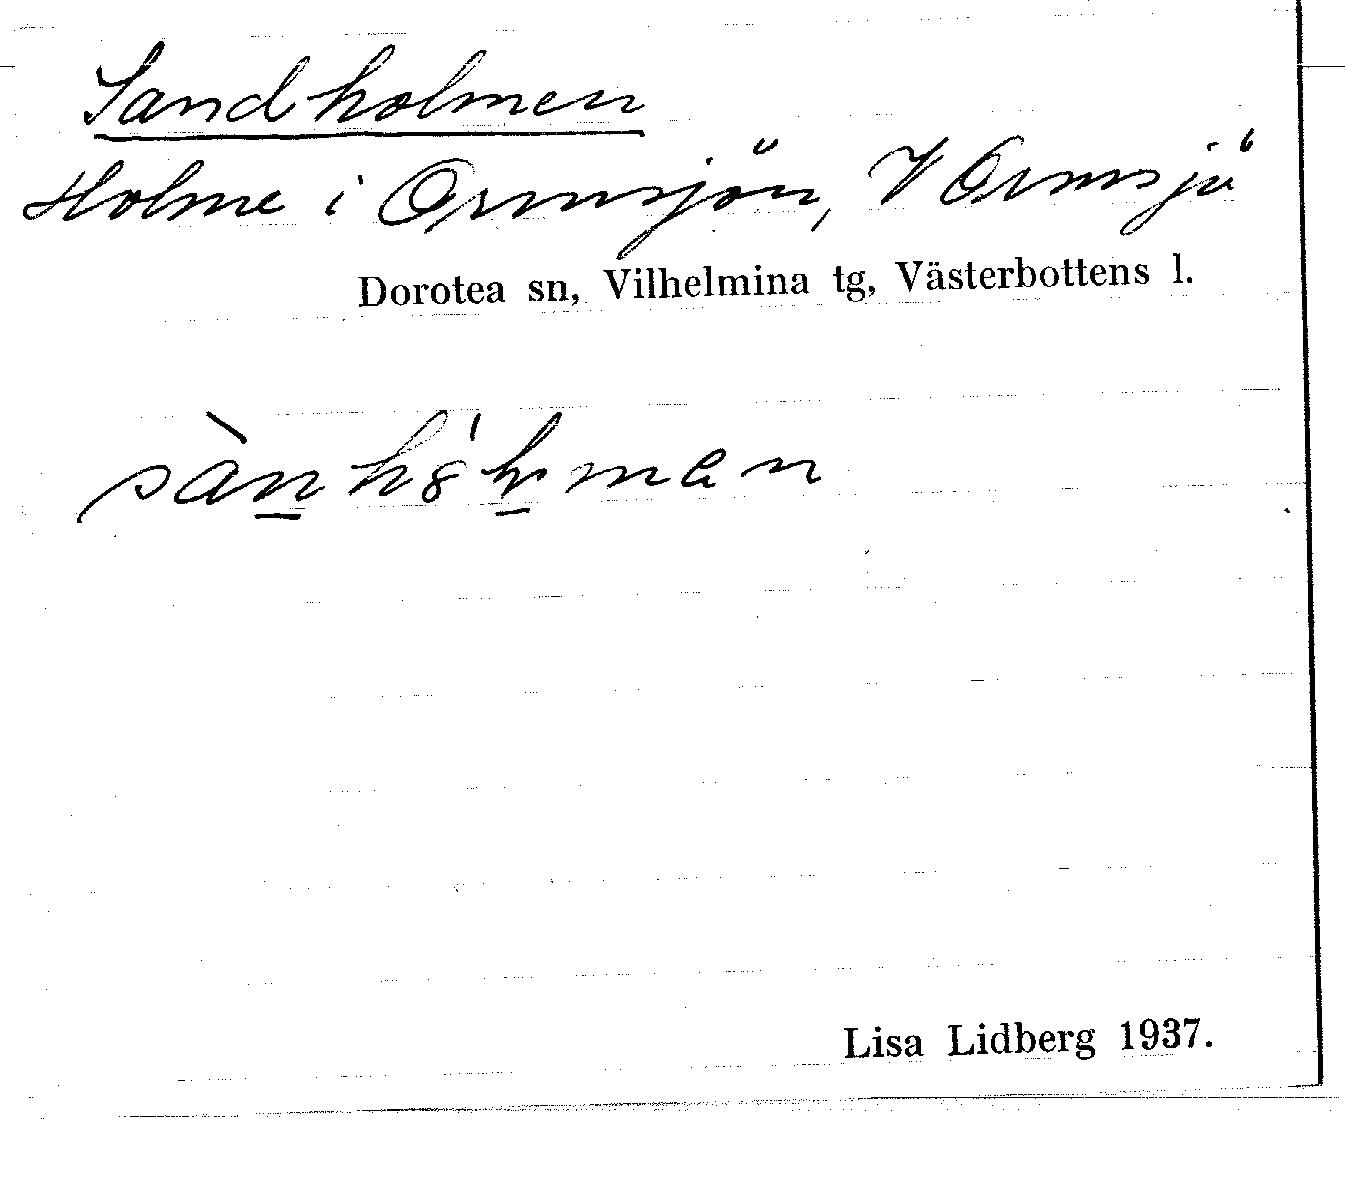 Sandholmen
Holme i Ormsjön, V Ormsjö
Dorotea sn, Vilhelmina tg, Västerbottens l.
Lisa Lidberg 1937.